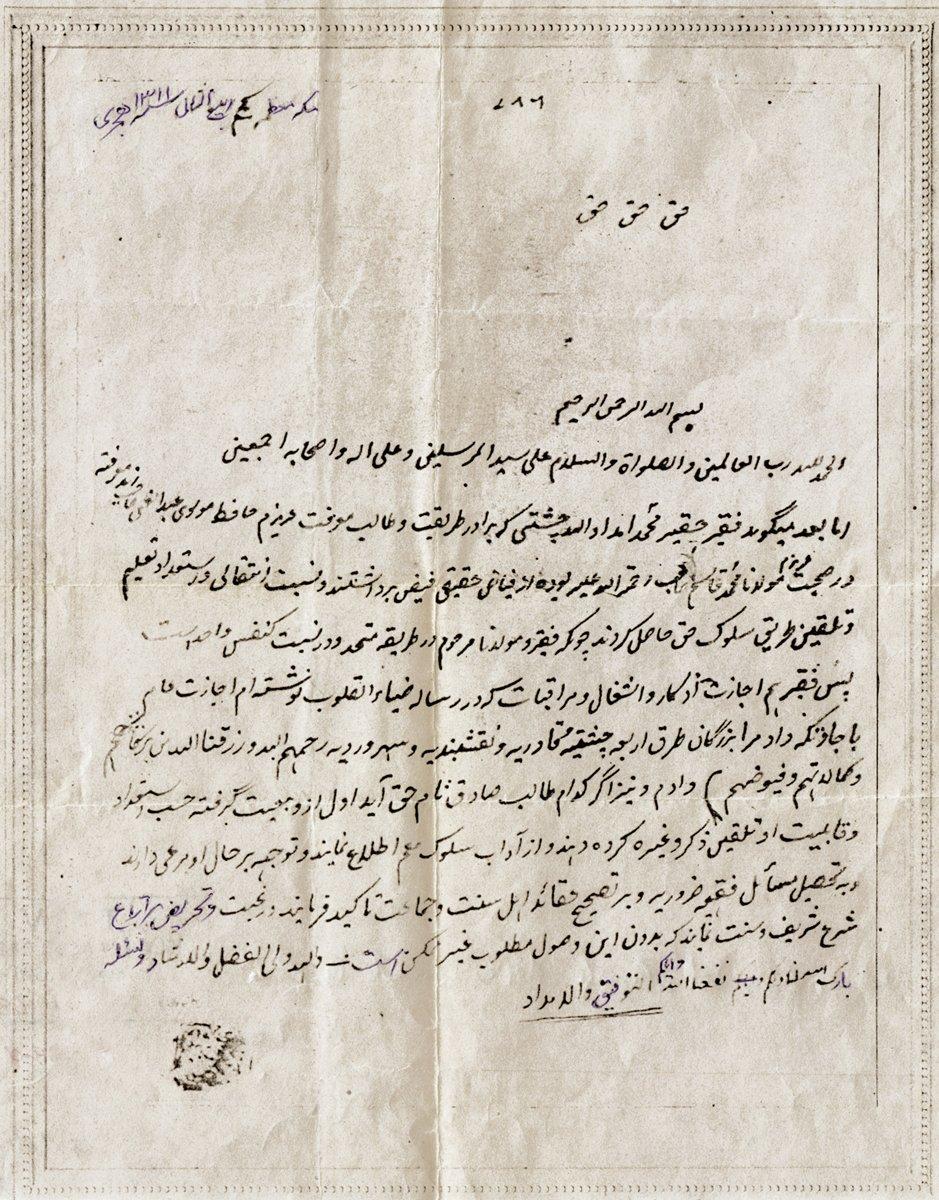 ۷۸۶
مکہ معظمہ یکم ربیع الثانی ۱۳۱۱ ہجری
حق حق حق
بسم اللہ الرحمن الرحیم
الحمد للہ رب العالمین والصلواۃ والسلام علی سید المرسلین وعلی الہ واصحابہ اجمعین
اما بعد میگوید فقیر حقیر محمد امداد اللہ چشتی کہ برادر طریقت وطالب معرفت عزیزم حافظ مولوی عبد الغنی صاحب
در صحبت عزیزم مولانا محمد قاسم صاحب رحمۃ اللہ علیہ بودہ از فیاض حقیقی فیض برداشتند ونسبت انتقالی واستعداد تعلیم
وتلقین طریق سلوک حق حاصل کردند چوکہ فقیر ومولانا مرحوم در طریقہ متحد ودر نسبت کنفس واحد است
پس فقیر ہم اجازت اذکار واشغال ومراقبات کہ در رسالہ ضیاء القلوب نوشتہ ام اجازت عام
با جازتکہ داد مرا بزرگان طرق اربعہ چشتیہ وقادریہ ونقشبندیہ وسہروردیہ رحمہم اللہ ورزقنا اللہ من برکاتہم
وکمالاتہم وفیوضہم) دادم ونیز اگر کدام طالب صادق بنام حق آید اول ازو بیعت گرفتہ حسب استعداد
وقابلیت او تلقین ذکر وغیرہ کردہ دہند واز آداب سلوک ہم اطلاع نمایند وتوجہ بر حال او مرعی دارند
وبہ تحصیل مسائل فقہیہ ضروریہ وبر تصحیح عقائد اہل سنت وجماعت تاکید فرمایند ورغبت وتحریض بر اتباع
شرع شریف وسنت نمایند کہ بدون این وصول مطلوب غیر ممکن است واللہ ولی الفضل والارشاد
بارک اللہ لنا ولکم نفعنا اللہ وایاکم التوفیق والامداد